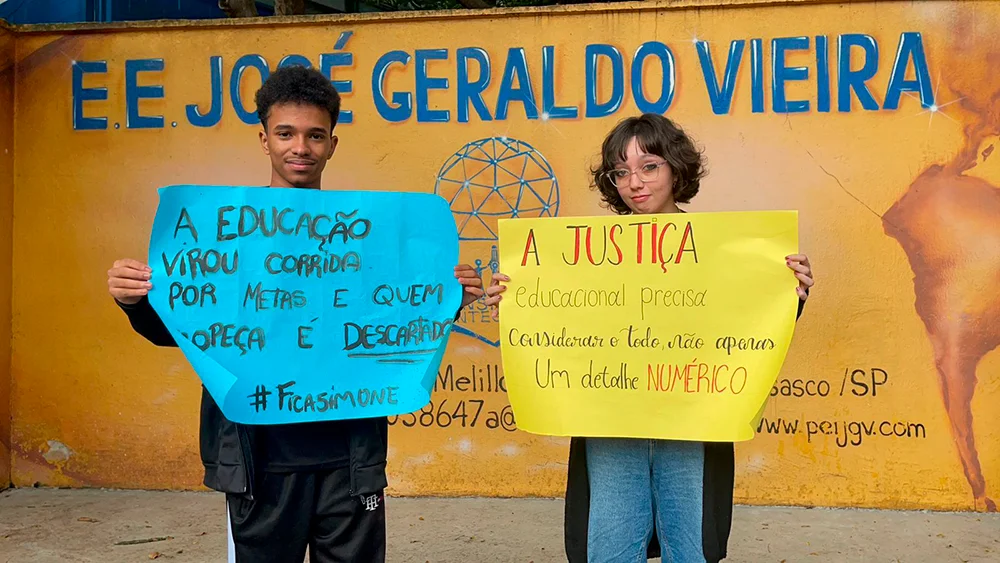 E.E. JOSÉ GERALDO VIEIRA
A EDUCAÇÃO
VIROU CORRIDA
POR METAS E QUEM
OPEÇA É DESCARTADO
#FICASIMONE
A JUSTIÇA
educacional precisa
Considerar o todo, não apenas
Um detalhe NUMÉRICO
Melillo
sasco /SP
38647a@
www.peijgv.com